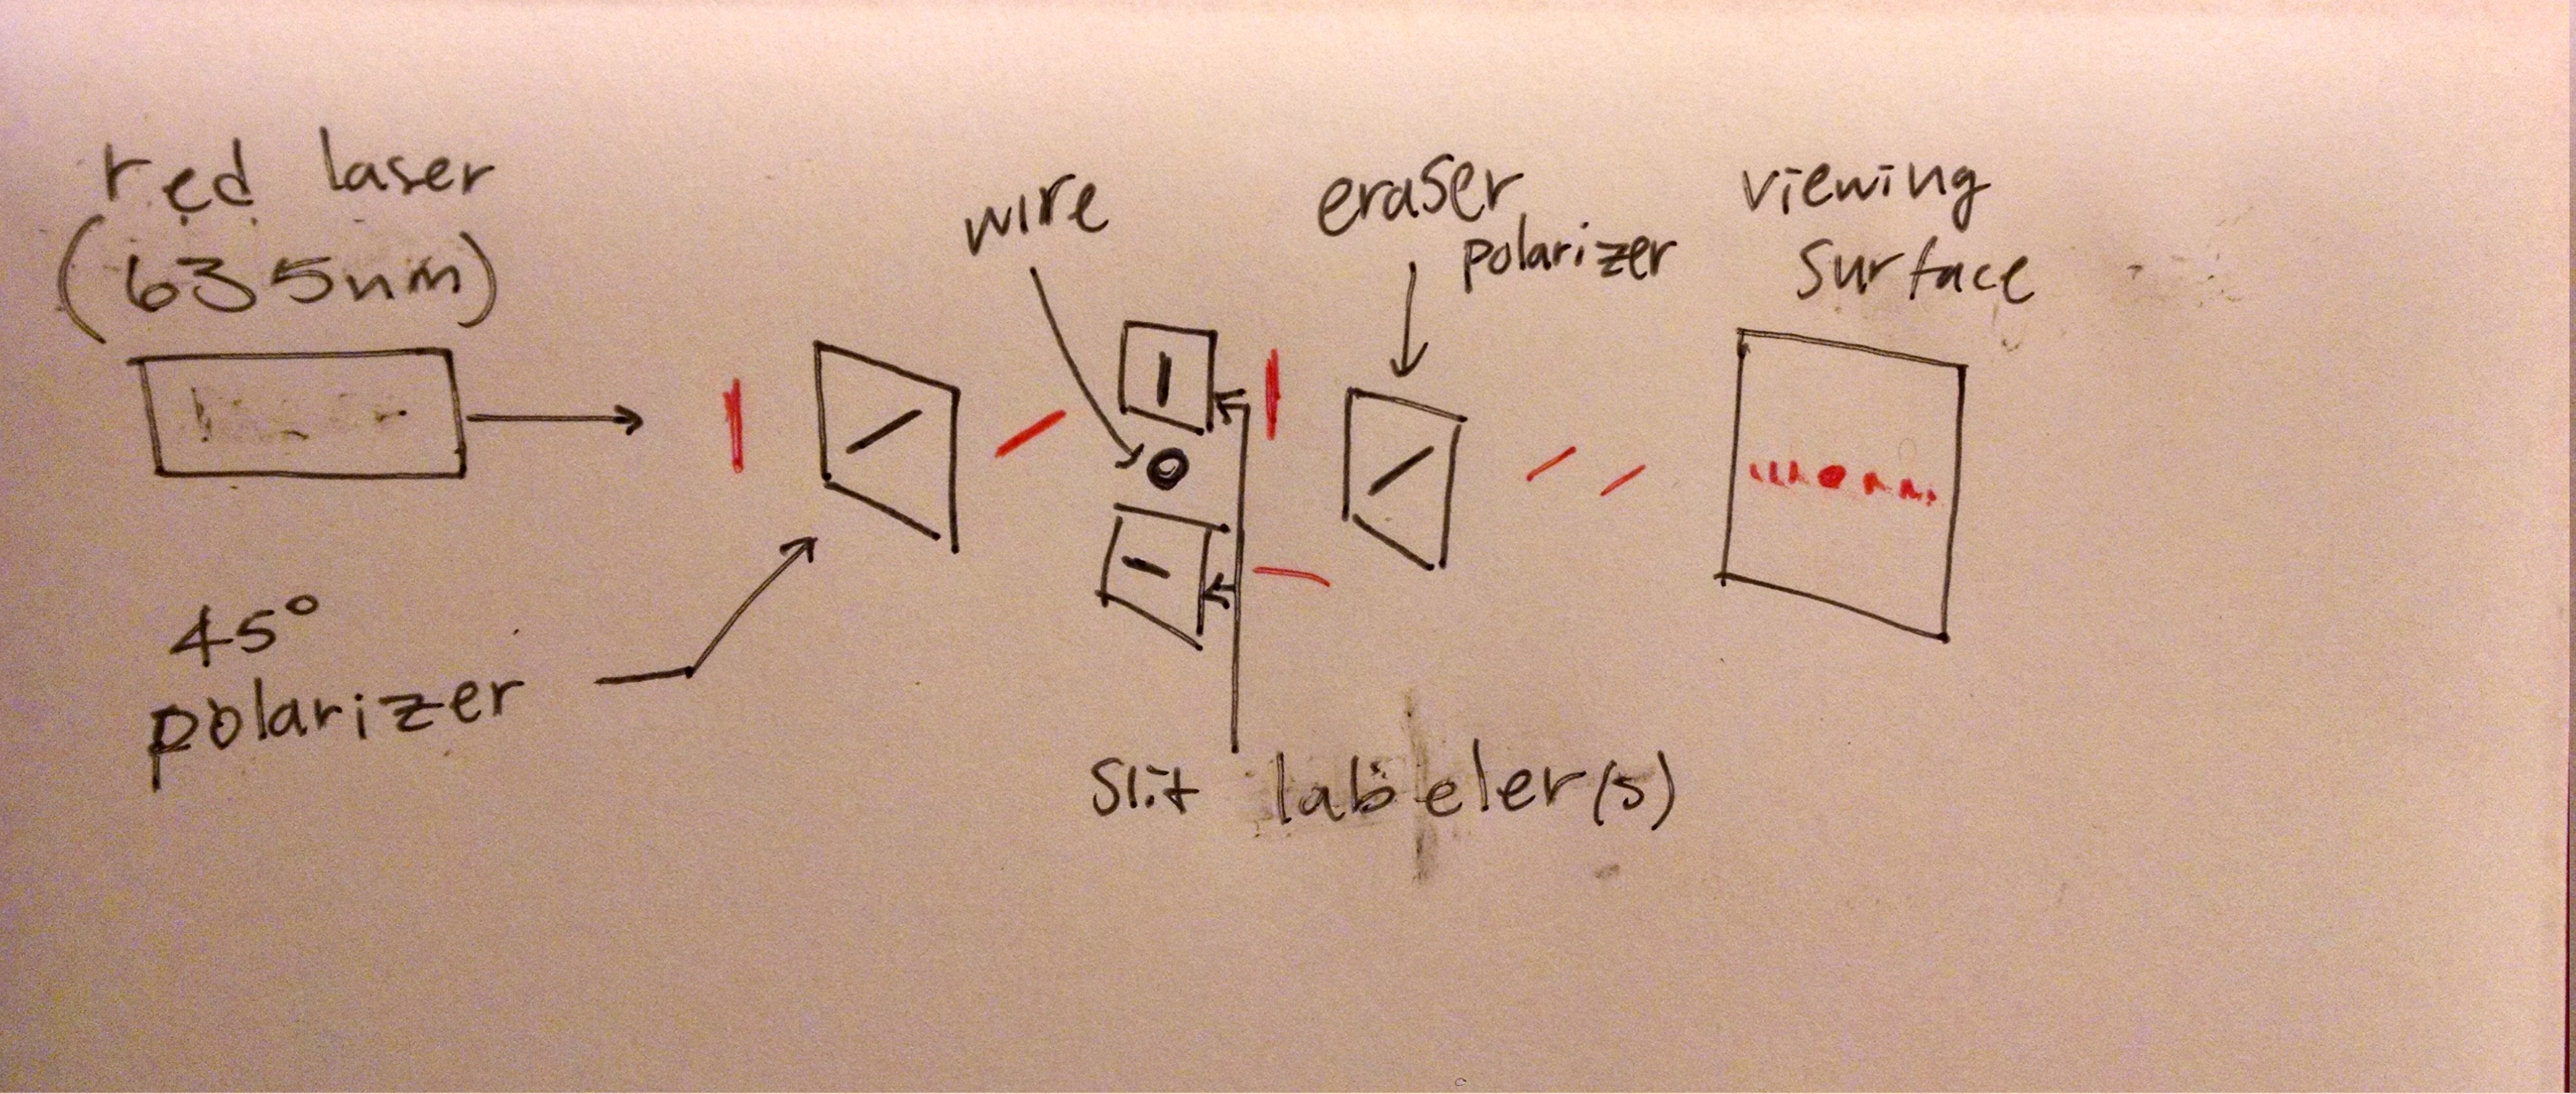 red laser
(635nm)
wire
eraser
polarizer
viewing
surface
45°
polarizer
slit labeler(s)